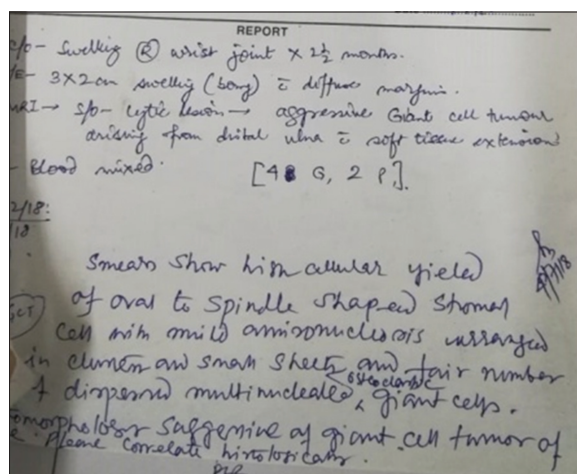 REPORT
c/o - Swelling Ⓡ wrist joint × 2½ months.
/E - 3×2cm swelling (bony) c̄ diffuse margin.
MRI → s/o - lytic lesion → aggressive Giant cell tumour
arising from distal ulna c̄ soft tissue extension
- Blood mixed. [4 G, 2 P].
2/18:
/18
Smears show high cellular yield
of oval to spindle shaped stromal
GCT
cell with mild anisonucleosis arranged
in clusters and small sheets and fair number
of dispersed multinucleated osteoclastic giant cells.
tomorphology suggestive of giant cell tumor of
Please correlate histologically.